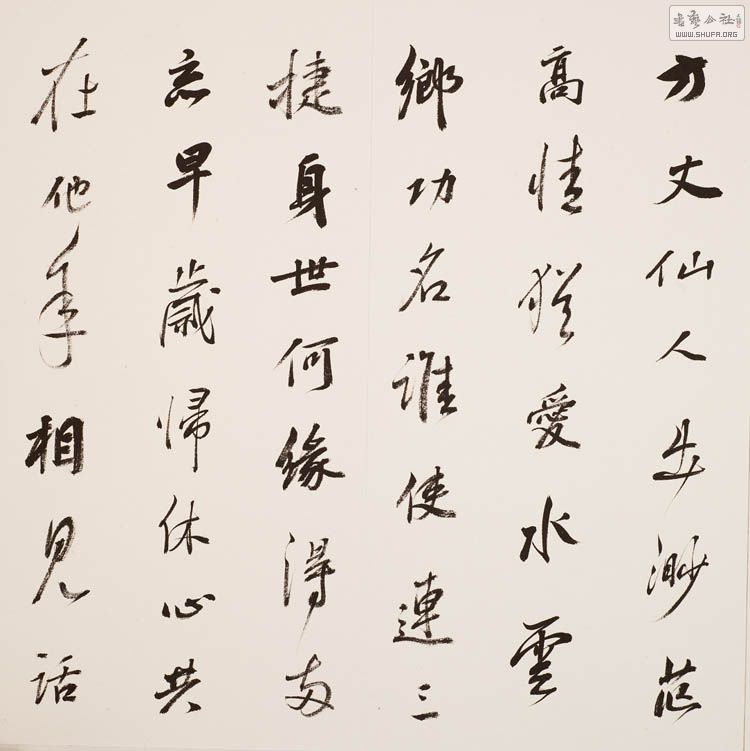 方丈仙人出渺茫
高情猶愛水雲
鄉功名誰使連三
捷身世何緣得兩
忘早歲歸休心共
在他年相見話
書藝公社
WWW.SHUFA.ORG